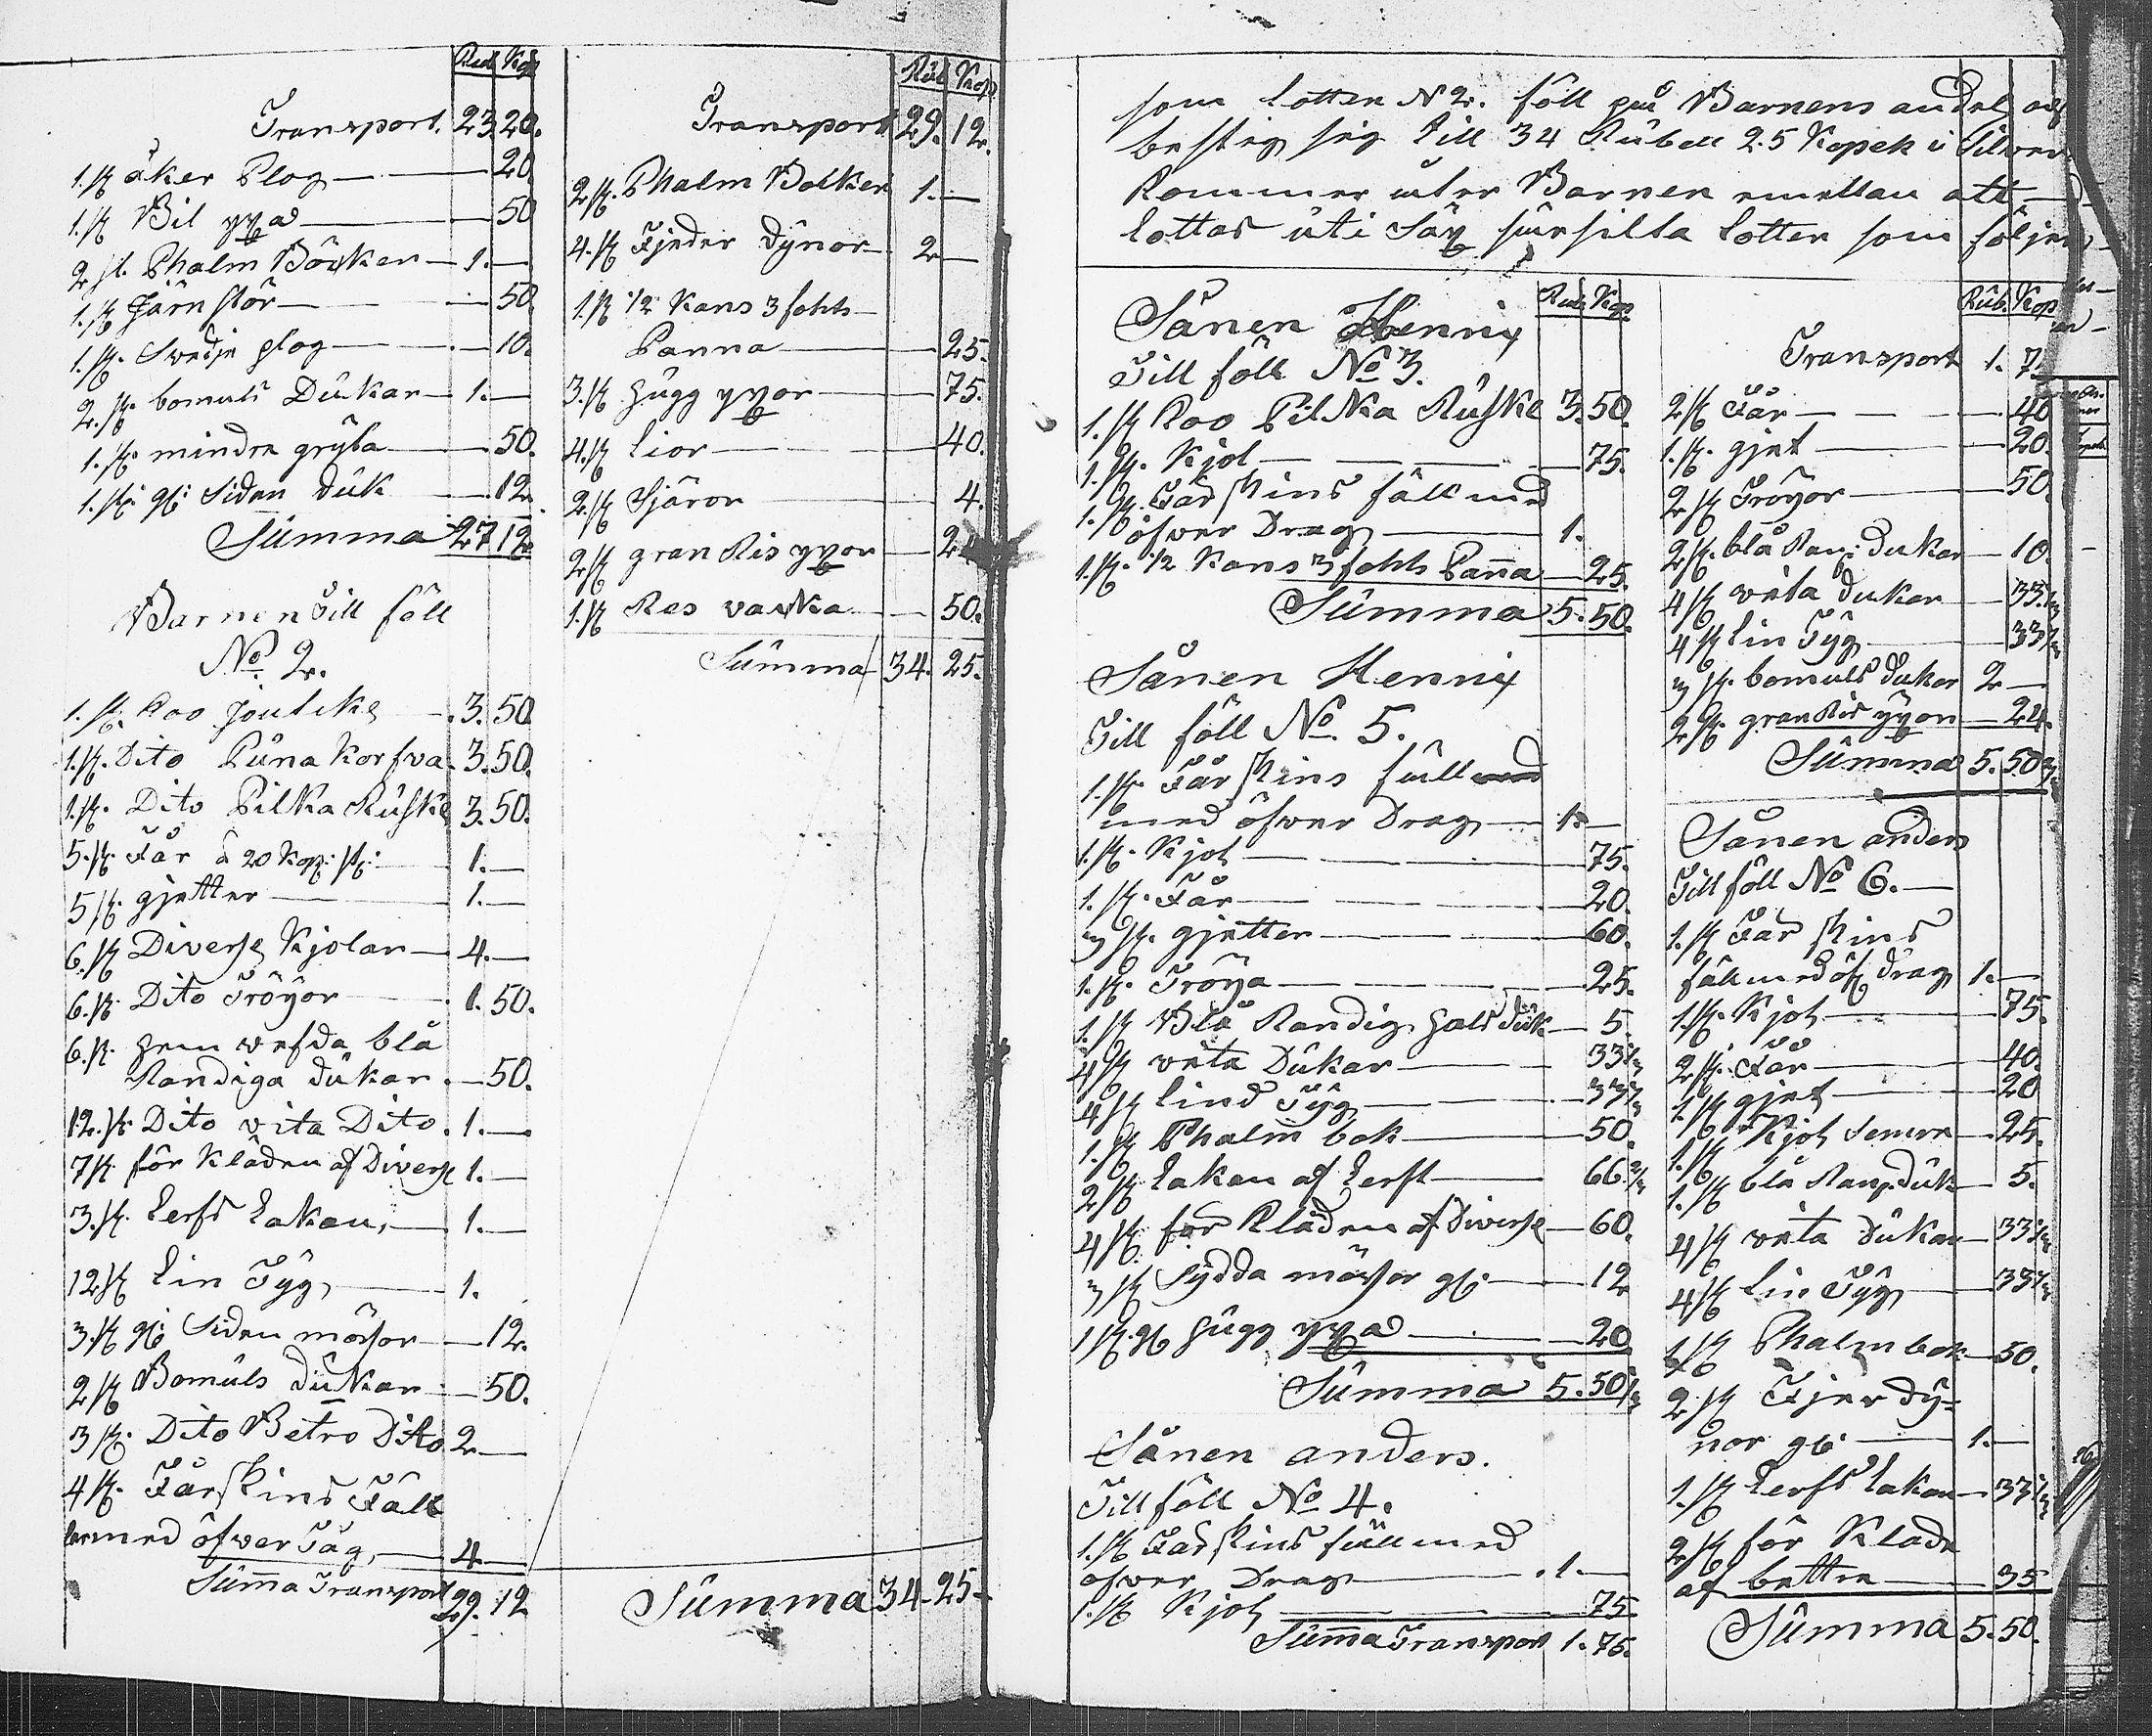 Rub Kop
Transport. 23 20.
1. st åker Plog 20
1. st Bil yxa 50
2 st. Phalm Böcker 1.
1. st Järn stör 50
1. st. Swedje plog 10.
2. st. bomuls Dukar 1.
1. st. mindre gryta 50.
1. st. gl: Siden duk 12.
Summa 27 12
Barnen Till föll
No 2.
1. st. Koo Joutike 3. 50
1. st. Dito Puna Korfva 3. 50.
1. st. Dito Pilka Ruske 3. 50.
5. st. Får à 20 Kop: st: 1.
5 st. gjetter 1.
6. st Diverse Kjolar 4.
6. st. Dito Tröyor 1. 50.
6. st. hem wefda blå
Randiga dukar. 50.
12. st. Dito vita Dito. 1.
7 st. för Kläden af Diverse 1.
3. st. Lerfs Lakan, 1.
12 st Lin Tyg 1.
3. st gl: Siden mössor 12.
2 st Bomuls dukar 50.
3 st. Dito Betro Dito 2
4 st. Fårskins Fäll
med öfwer Tåg, 4
Summa Transport 29. 12
Rub Kop.
Transport 29. 12.
2 st. Phalm Bolker 1.
4. st Fjeder dynor 2
1. st 1/2 Kans 3 fohts
Panna 25.
3. st hugg yxor 75.
4. st lior 40.
2. st Skäror 4.
2 st gran Ris yxor 24
1. st Res vacka 50.
Summa 34. 25.
Summa 34. 25
som Lotten N 2. föll på Barnens andel och
bestig sig till 34 Rubell 25 Kopek i Silwer
kommer uter Barnen emellan att
lottas uti Sex särsilta lotter som följer
Rub. Kop.
Sånen Henrix
Till föll No 3.
1. st Koo Pilka Ruske 3. 50.
1. st. Kjol 75.
1. st. Fårskins fäll med
öfwer Drag 1.
1. st. 1/2 Kans 3 fohts Panna 25.
Summa 5. 50.
Sånen Henrix
Till föll No. 5.
1. st. Får skins fäll
med öfwer Drag 1.
1. st. Kjol 75.
1. st. Får 20.
3 st. gjetter 60.
1. st. Tröya 25.
1. st Blå Randig hals duk 5.
4 st wita Dukar 33 1/3
4 st lind Tyg 33 1/3
1. st Phalm bok 50.
2 st Lakan af Lerft 66 2/3
4 st för Kläden af Diverse 60.
3 st Sydda mössor gl: 12
1 st. gl hugg yxa 20
Summa 5. 50 1/3
Sånen anders.
Till föll No 4.
1. st Fårskins fäll med
öfwer Drag 1.
1. st Kjol 75
Summa Transport 1. 75.
Rub. Kop
Transport 1. 7
2 st Får 40
1. st. gjet 20.
2 st Tröyor 50.
2 st. blå Ran: dukar 10.
4 st wita dukar 33. 1/3
4 st Lin Tyg 33 1/3
3 st. bomuls dukar 2
2 st. gran Ris yxor 24.
Summa 5. 50 2/3
Sånen anders
Till föll No 6.
1. st Får skins
fäll med öf drag 1.
1. st. Kjol 75.
2 st. Får 40.
1. st gjet 20
1. st Kjol semre 25.
1. st blå Ran: duk 5.
4 st wita Dukar 33 1/3
4 st Lin Tyg 33 1/3
1 st Phalm bok 50.
2 st Fjer dy=
nor gl: 1.
1. st Lerfs Lakan 33 1/3
2 st för Kläde
af bettre 35
Summa 5. 50.